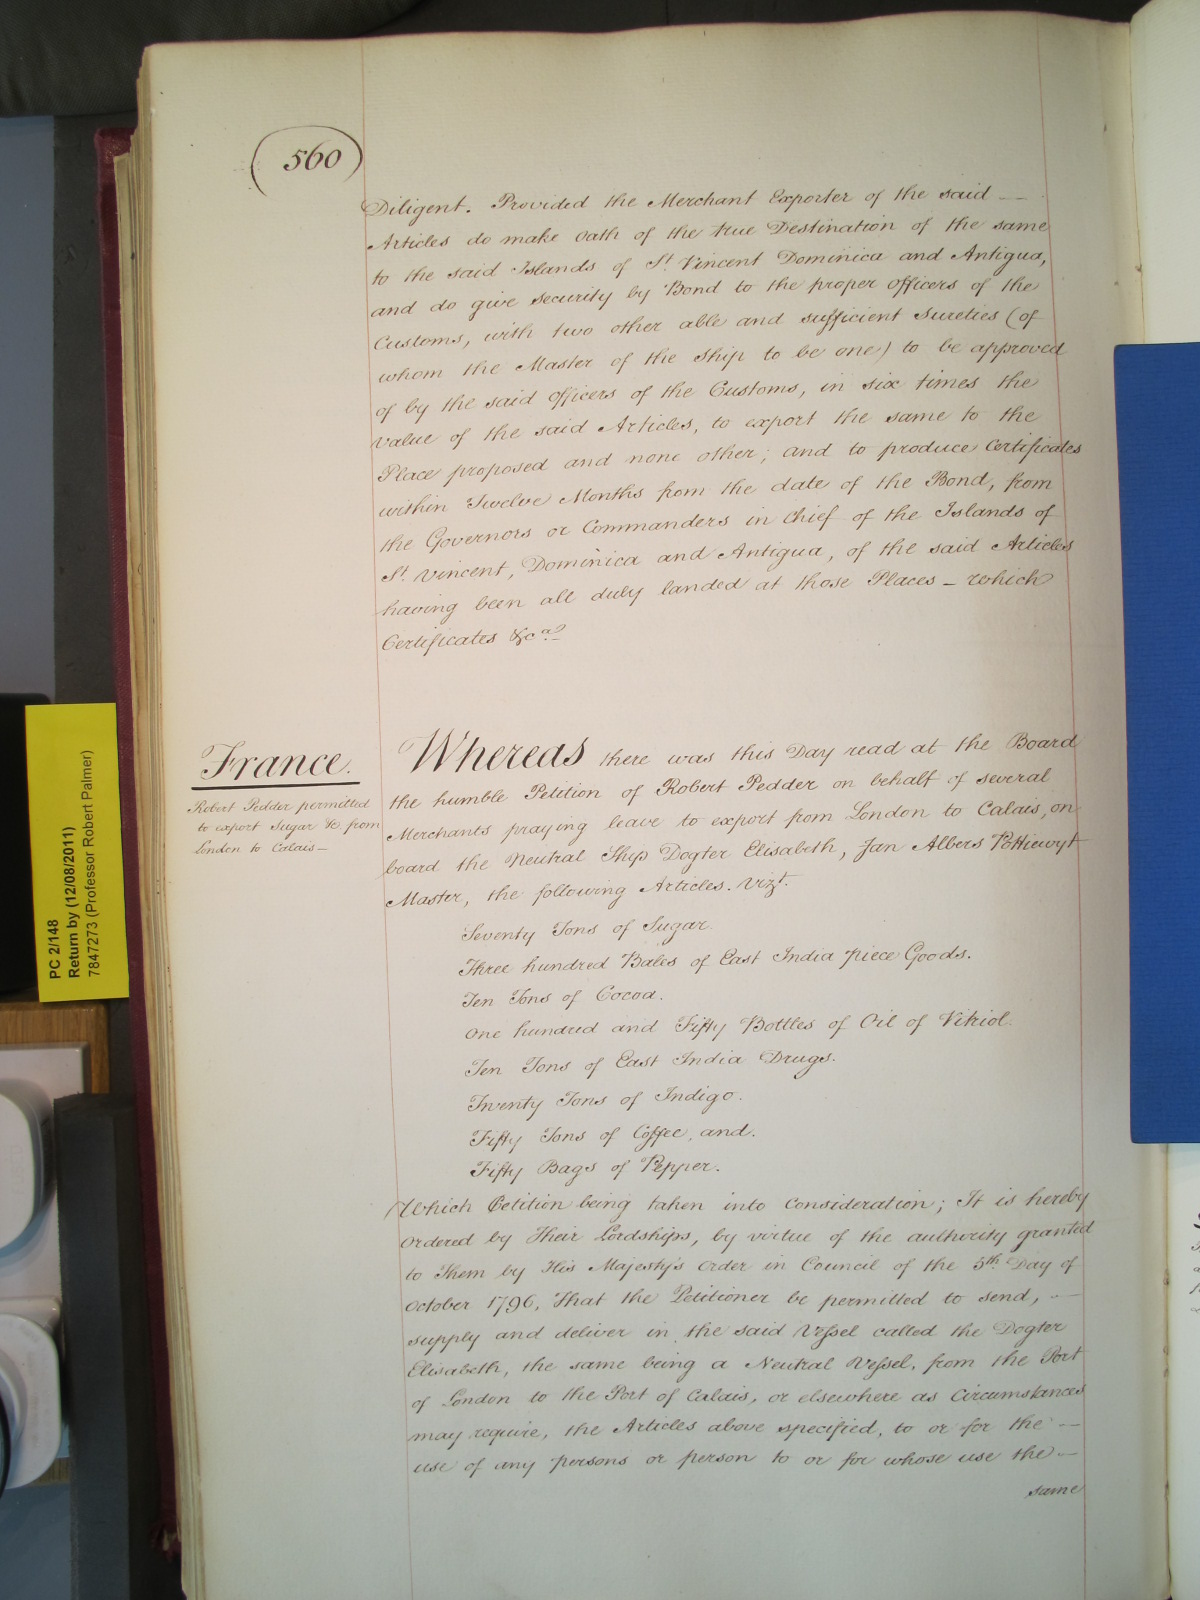 (560)
Diligent. Provided the Merchant Exporter of the said —
Articles do make Oath of the true Destination of the same
to the said Islands of St. Vincent Dominica and Antigua,
and do give security by Bond to the proper Officers of the
Customs, with two other able and sufficient Sureties (of
whom the Master of the Ship to be one) to be approved
of by the said Officers of the Customs, in six times the
value of the said Articles, to export the same to the
Place proposed and none other; and to produce Certificates
within Twelve Months from the date of the Bond, from
the Governors or Commanders in Chief of the Islands of
St. Vincent, Dominica and Antigua, of the said Articles
having been all duly landed at those Places — which
Certificates &ca.
France.
Robert Pedder permitted
to export Sugar &c. from
London to Calais —
Whereas there was this Day read at the Board
the humble Petition of Robert Pedder on behalf of several
Merchants praying leave to export from London to Calais, on
board the Neutral Ship Dogter Elisabeth, Jan Albers Pottiewyt
Master, the following Articles. Vizt.
Seventy Tons of Sugar.
Three hundred Bales of East India piece Goods.
Ten Tons of Cocoa.
One hundred and Fifty Bottles of Oil of Vitriol.
Ten Tons of East India Drugs.
Twenty Tons of Indigo.
Fifty Tons of Coffee, and.
Fifty Bags of Pepper.
Which Petition being taken into consideration; It is hereby
Ordered by Their Lordships, by virtue of the authority granted
to Them by His Majesty's Order in Council of the 5th. Day of
October 1796, That the Petitioner be permitted to send, —
supply and deliver in the said Vessel called the Dogter
Elisabeth, the same being a Neutral Vessel, from the Port
of London to the Port of Calais, or elsewhere as Circumstances
may require, the Articles above specified, to or for the —
use of any persons or person to or for whose use the —
same
PC 2/148
Return by (12/08/2011)
7847273 (Professor Robert Palmer)